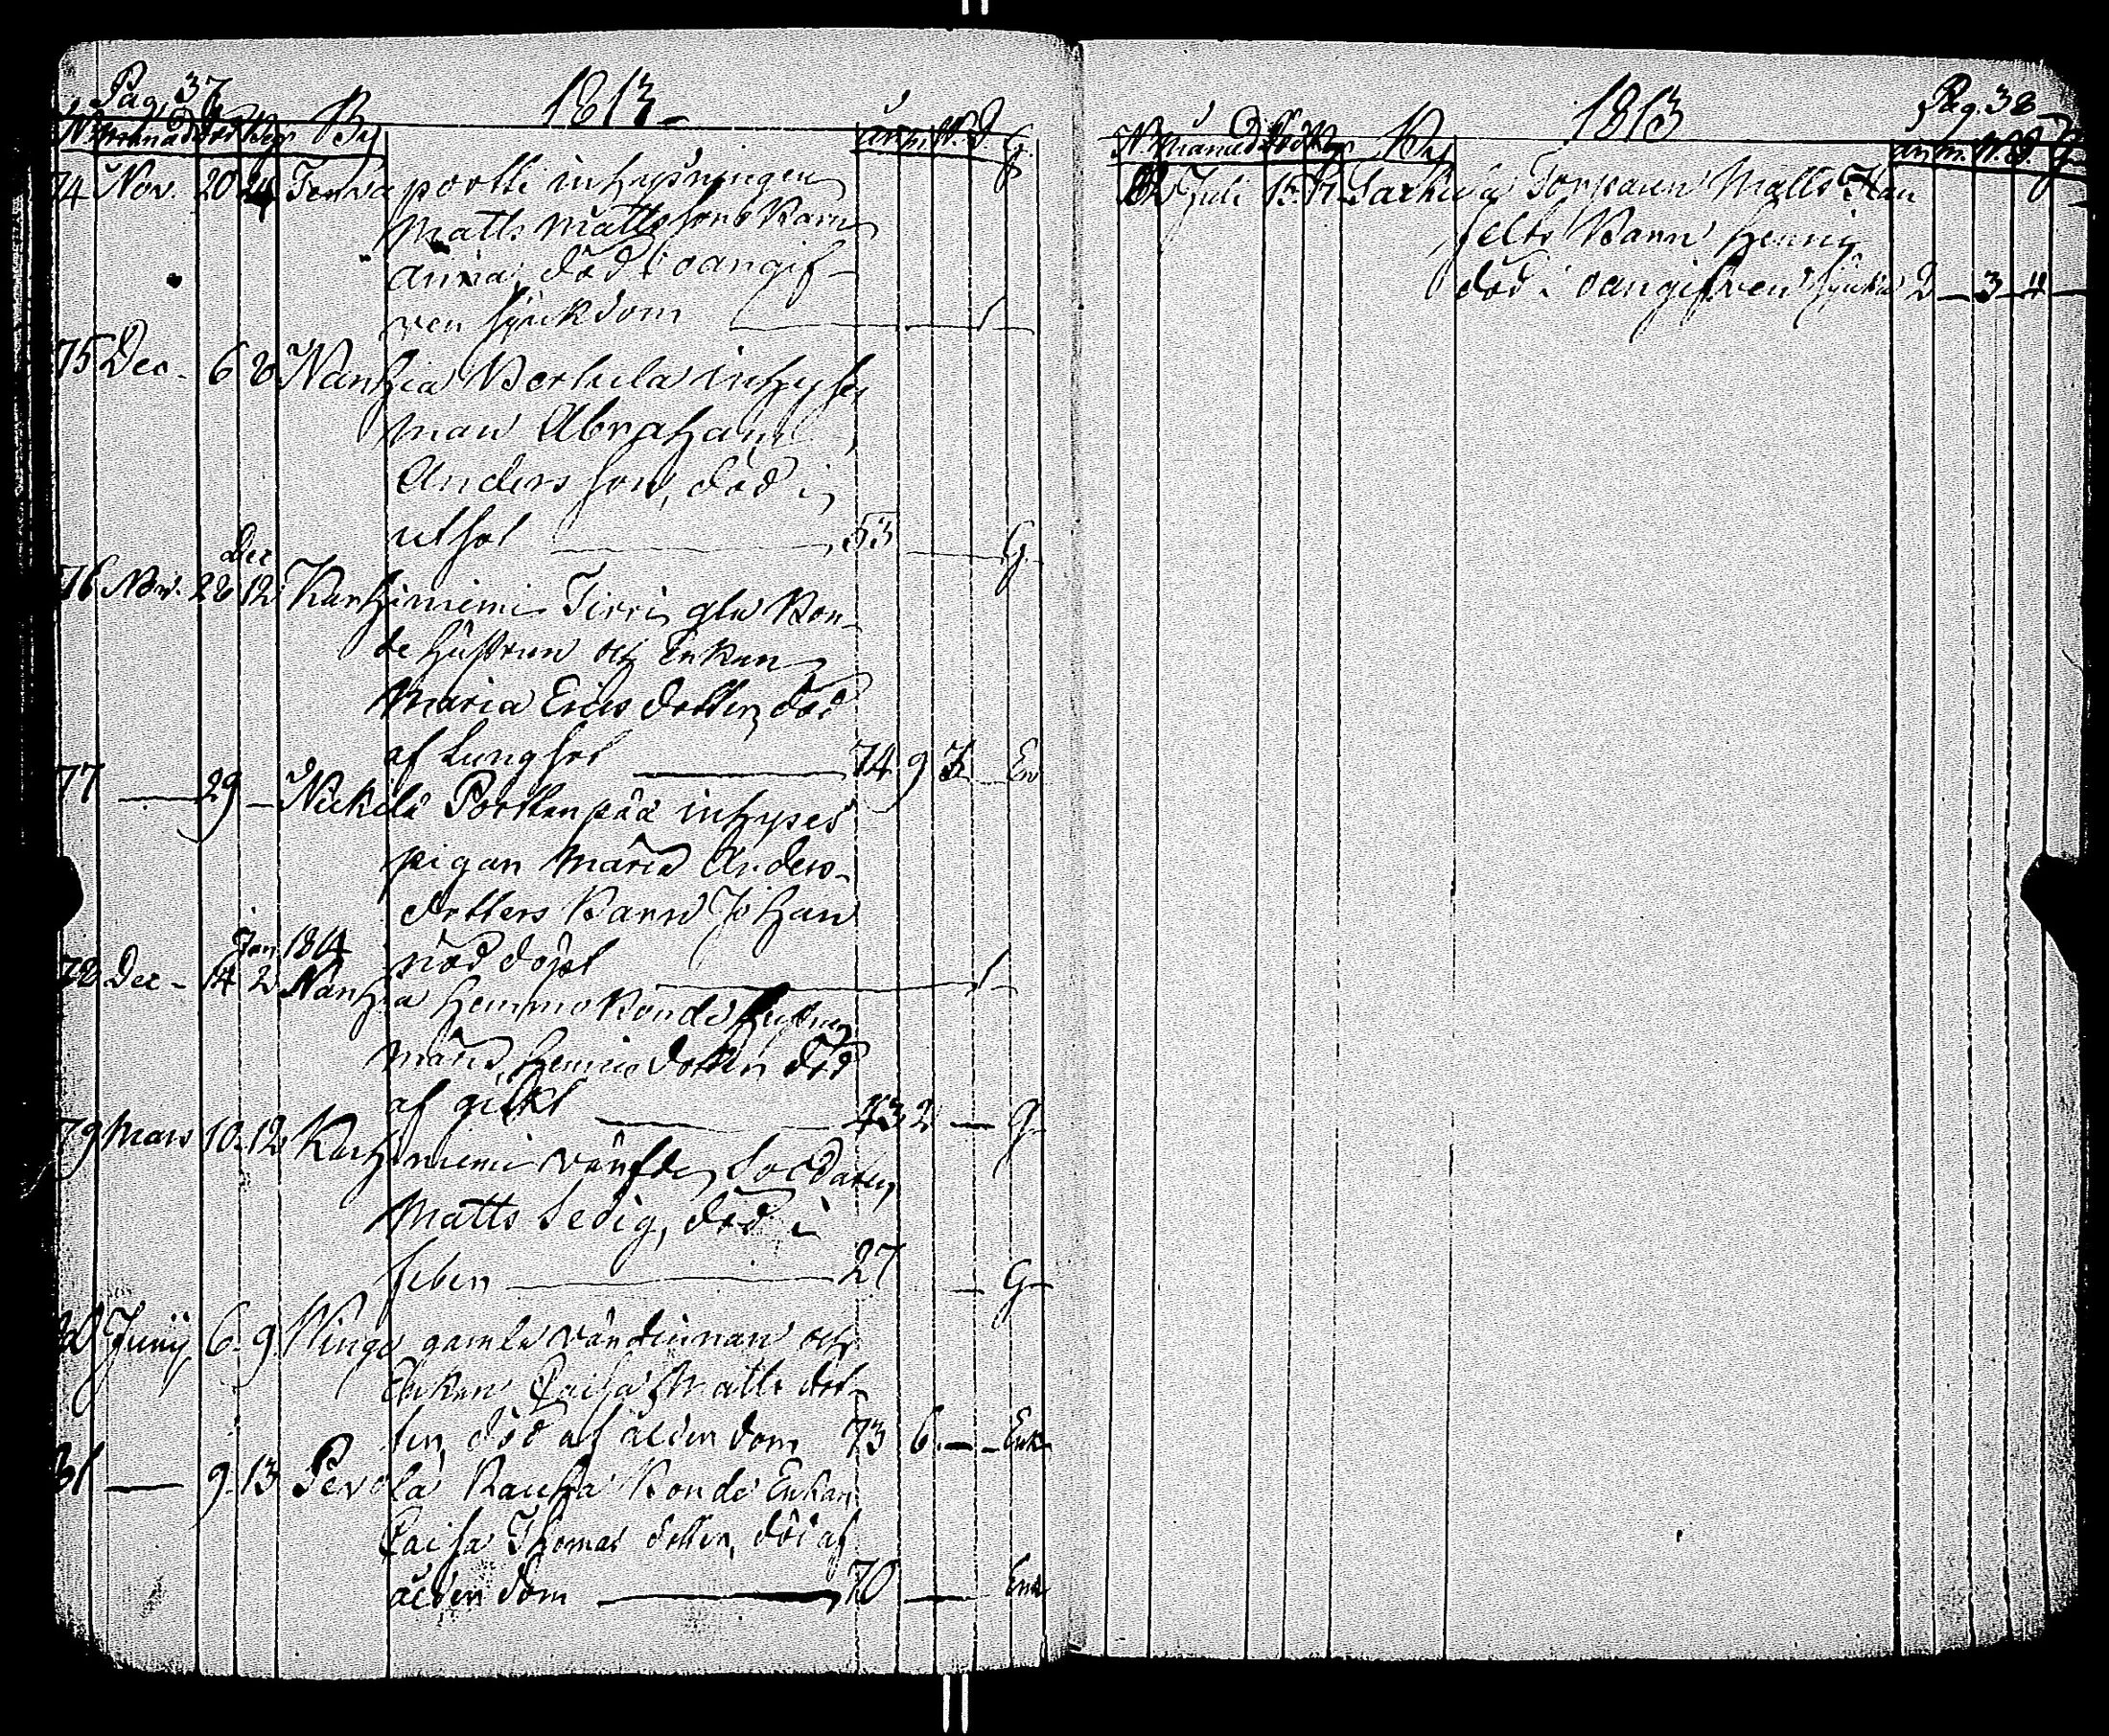 Pag. 37
1813
N. Månad Död Beg. By år m. W. D. G.
74 Nov. 20 24 Terva portti inhysningen
Matts Mattssons Barn
Anna, död i oangif-
ven sjukdom 1
75 Dec. 6 8 Nanhia Berkula inhyses
man Abraham
Andersson, död i
utsot 53 G.
Dec
76 Nov. 28 12 Karhiniemi Tirri gla Bon-
de hustrun och Enkan
Maria Ericsdotter, död
af Lungsot 74 9 En
77 — 29 — Nickilä Porttenpää inhyses
pigan Maria Anders-
dotters Barn Johan
nöddöpt 1
Jan. 1814
78 Dec. 14 2 Nanhia Hemmo Bonde hustrun
Maria Henricsdotter död
af gikt 43 2 — G
79 Mars 10 12 Karhiniemi värfde Soldaten
Matts Ledig, död i
feber 27 — G
80 Junij 6 9 gamla värdinnan och
Enkan Caisa Matts dot-
ter, död af ålderdom 73 6 — Enk
81 — 9 13 Pevola Rauha Bonde Enkan
Caisa Thomas dotter, död af
ålderdom 70 — Enk
Pag. 38
1813
N. Månad Död Beg. By år m. W. D. G.
82 Juli 15 17 Torparen Matts
felts Barn Henric
död i oangifven sjukd 2 — 3 4 —